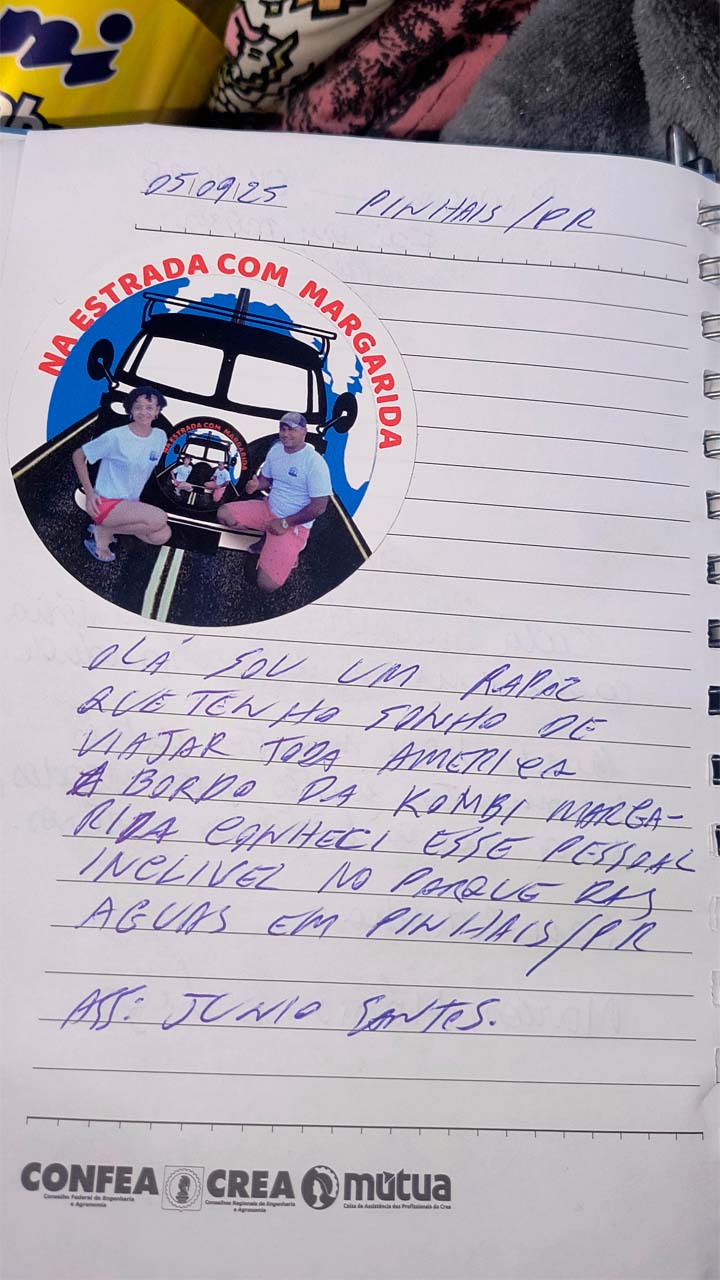 ni
05/09/25 PINHAIS/PR
NA ESTRADA COM MARGARIDA
NA ESTRADA COM MARGARIDA
OLÁ SOU UM RAPAZ
QUE TENHO SONHO DE
VIAJAR TODA AMERICA
A BORDO DA KOMBI MARGA-
RIDA CONHECI ESSE PESSOAL
INCLIVEL NO PARQUE DAS
AGUAS EM PINHAIS/PR
ASS: JUNIO SANTOS.
CONFEA CREA mútua
Conselho Federal de Engenharia e Agronomia
Conselhos Regionais de Engenharia e Agronomia
Caixa de Assistência dos Profissionais do Crea